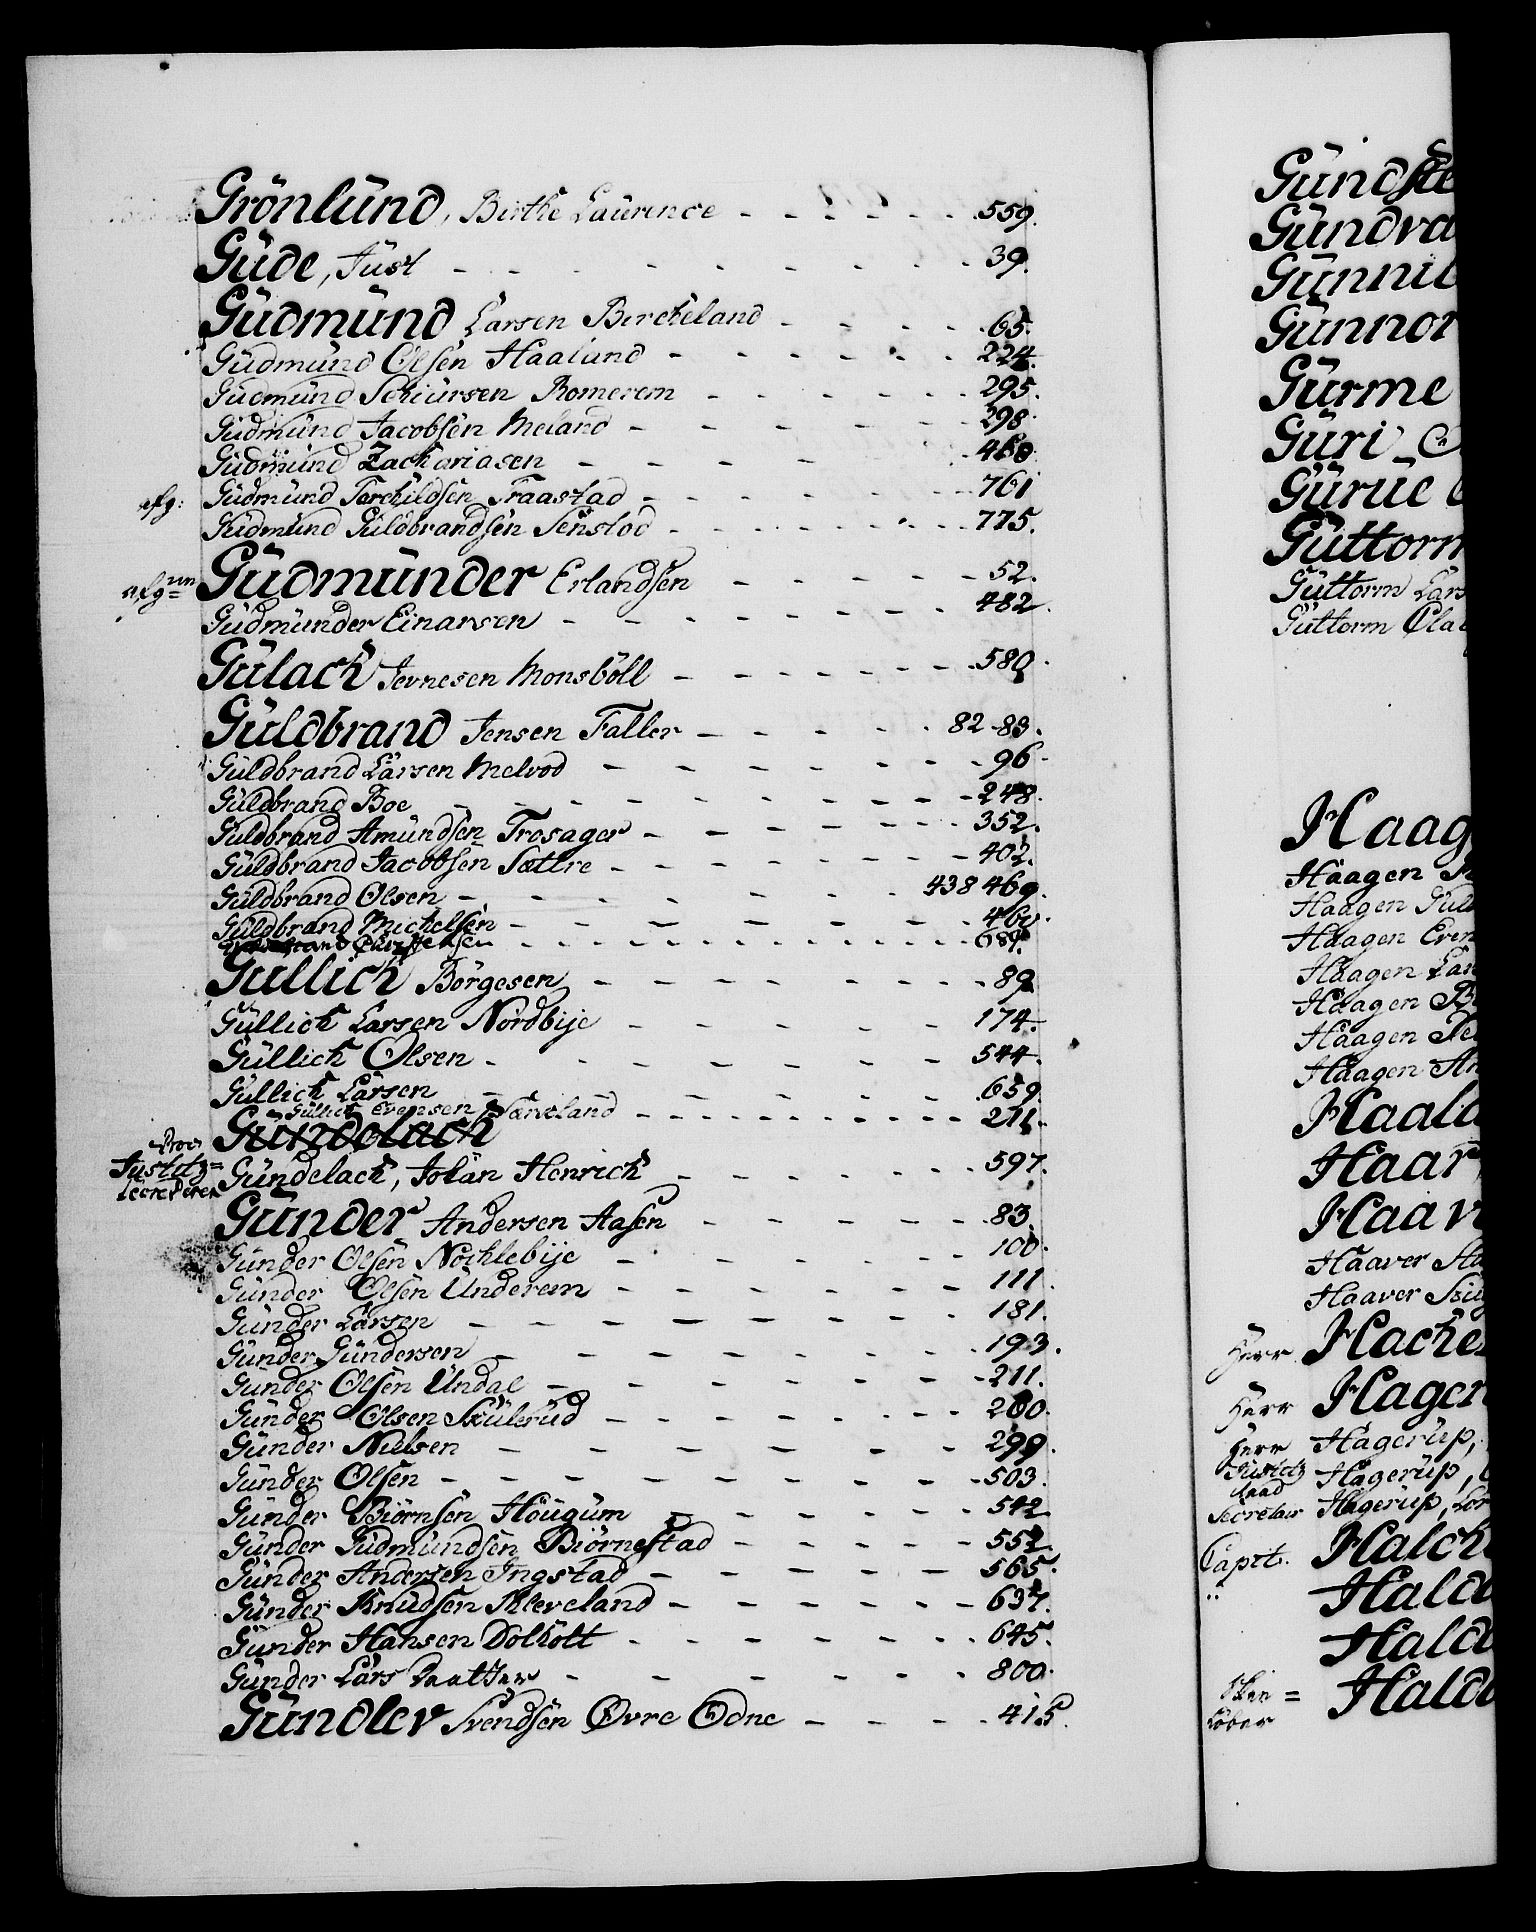 Grönlünd, Birthe Laürence - - - - - - 559.
Güde, Jüst - - - - - - - - 39.
Güdmünd Larsen Bircheland - - - - 65.
Güdmünd Olsen Haaland - - - - - - 224.
Güdmünd Schiürsen Romerem - - - - - - 295.
Güdmünd Jacobsen Meland - - - - - - 298.
Güdmünd Zachariasen - - - - 460.
afg: Güdmünd Torchildsen Fraastad - - - - - - 761
Güdmünd Güldbrandsen Senstod - - - - - - 775.
Güdmünder Erlandsen - - - - - - 52.
Güdmünder Einarsen - - - - - - 482.
Gülach Jevnesen Monsböll - - - - - - 580.
Güldbrand Jensen Faller - - - - - 82-83.
Güldbrand Larsen Melvod - - - - - - 96.
Güldbrand Boe - - - - - - - - 248.
Güldbrand Amündsen Trosager - - - - - - 352.
Güldbrand Jacobsen Sættre - - - - - - 402.
Güldbrand Olsen - - - - - - 438 469.
Güldbrand Michelsen - - - - - - 460.
Christensen - - - - - - 689.
Güllich Börgesen - - - - - - 89.
Güllich Larsen Nordbije - - - - - 174.
Güllich Olsen - - - - - - 544.
Güllich Larsen - - - - - - 659.
Güllich Evensen - - - - - - 211.
Gündelach
Justitz=
Gündelach, Johan Henrich - - - - - - 597.
Günder Andersen Aasen - - - - - - 83.
Günder Olsen Nochlebije - - - - - - 100.
Günder Olsen Ünderem - - - - - - 111.
Günder Larsen - - - - - - - 181.
Günder Gündersen - - - - - - - 193.
Günder Olsen Undal - - - - - - - 211.
Günder Olsen Skülerüd - - - - - - 260.
Günder Nielsen - - - - - - 299.
Günder Olsen - - - - - - - - 503.
Günder Biörnsen Höugüm - - - - - 542
Günder Güdmündsen Biörnestad - - - - - 552.
Günder Andersen Ingstad - - - - - - 565.
Günder Knüdsen Kleveland - - - - - - 637.
Günder Hansen Dolholt - - - - - - 645.
Günder Lars - - - - - - 800.
Gündlev Svendsen Øvre Odne - - - - - 415.
Gündste
Gündva
Günnil
Günnor
Gürme
Güri
Gürüe
Güttorm
Güttorm Lars
Güttorm Ola
Haag
Haagen
Haagen Güld
Haagen Even
Haagen Lar
Haagen B
Haagen Pe
Haagen An
Haald
Haar
Haav
Haaver Aa
Haaver
Herr Hache
Herr Hagen
Herr Hagerüp,
Justitz Raad Hagerüp,
Secretair Hagerüp, Lor
Capit. Halch
" Hald
Hald
Hald